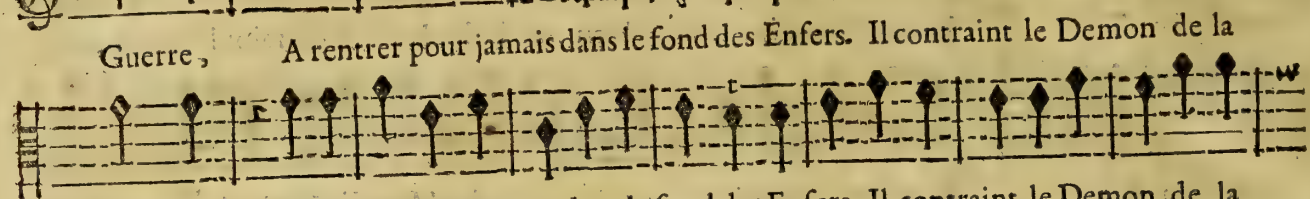 Guerre, A rentrer pour jamais dans le fond des Enfers. Il contraint le Demon de la
fond des Enfers. Il contraint le Demon de la